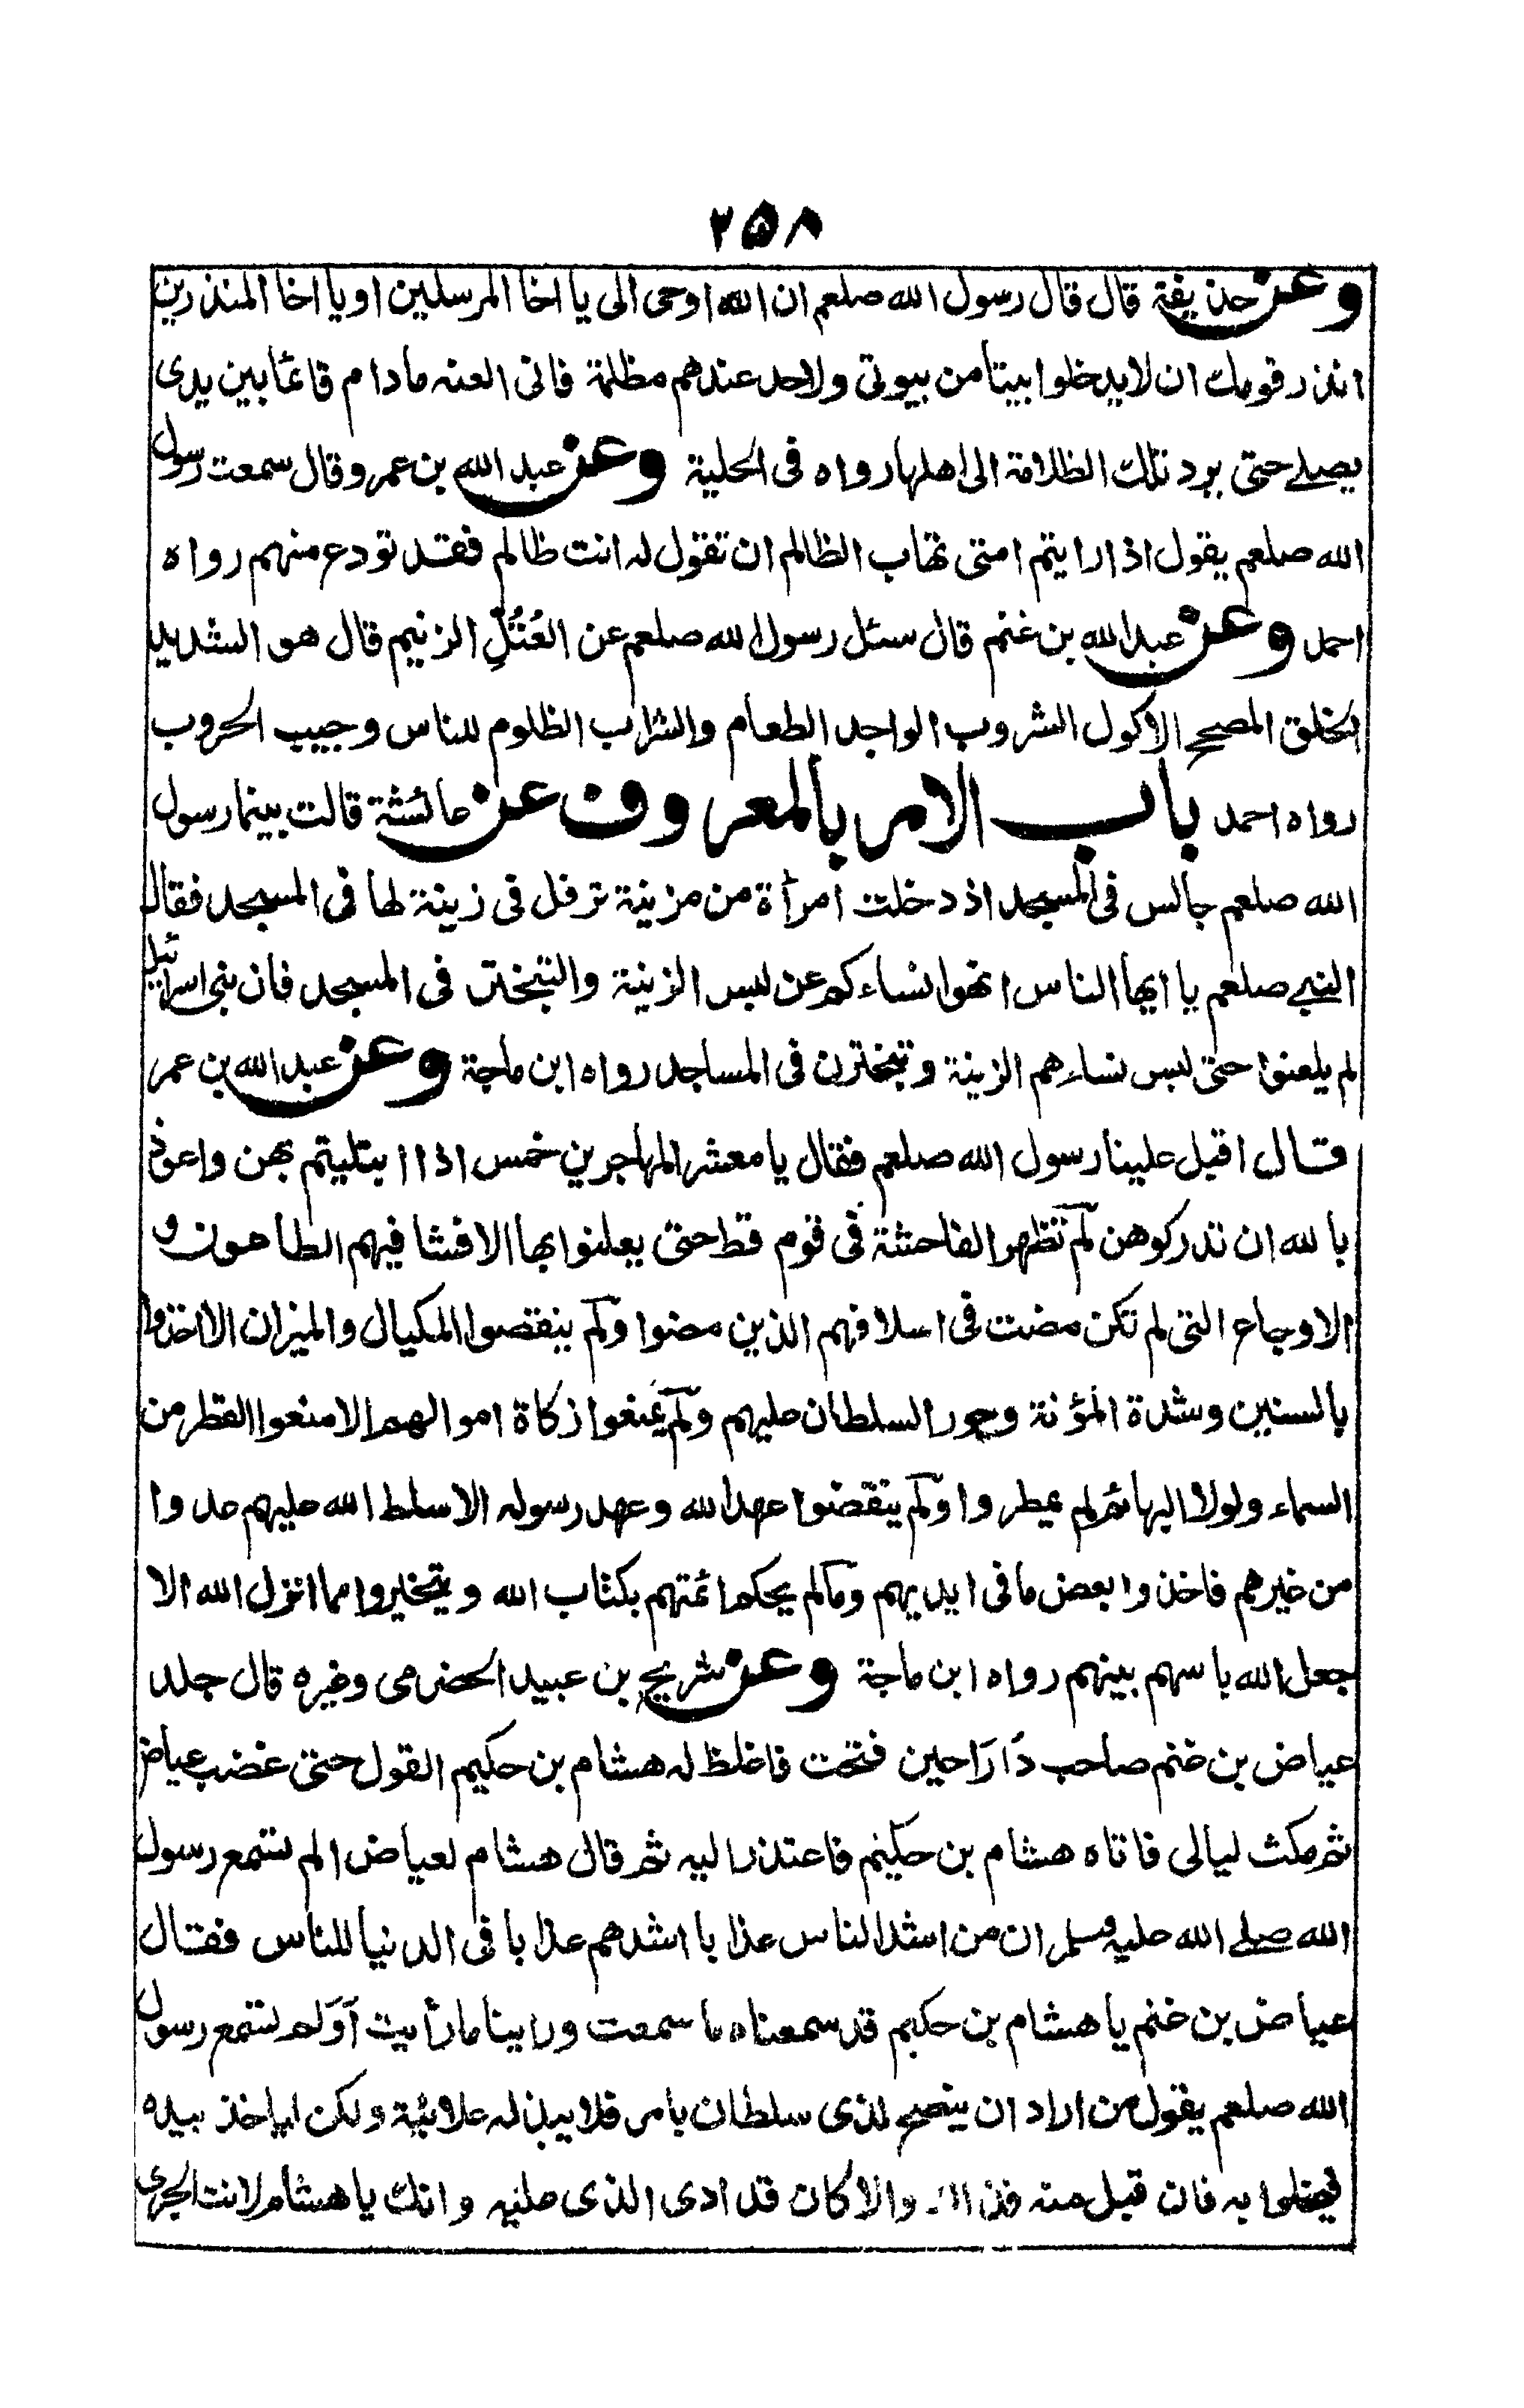 ٢٥٨
وعن حذيفة قال قال رسول الله صلعم ان الله اوحى الى يا اخا المرسلين او يا اخا المنذرين
انذر قومك ان لا يدخلوا بيتا من بيوتى ولاحد عندهم مظلمة فانى العنه ما دام قائما بين يدى
يصلے حتى يرد تلك الظلامة الى اهلها رواه فى الحلية وعن عبد الله بن عمرو قال سمعت رسول
الله صلعم يقول اذا رايتم امتى تهاب الظالم ان تقول له انت ظالم فقد تودع منهم رواه
احمد وعن عبد الله بن غنم قال سئل رسول الله صلعم عن العُتُلِّ الزنيم قال هو الشديد
الخلق المصحح الاكول الشروب الواجد الطعام والشراب الظلوم للناس وجيب الحروب
رواه احمد باب الامر بالمعروف عن عائشة قالت بينما رسول
الله صلعم جالس فى المسجد اذ دخلت امرأة من مزينة ترفل فى زينة لها فى المسجد فقال
النبے صلعم يا ايها الناس انهوا نساءكم عن لبس الزينة والتبختر فى المسجد فان بنى اسرائيل
لم يلعنوا حتى لبس نساءهم الزينة وتبخترن فى المساجد رواه ابن ماجة وعن عبد الله بن عمر
قال اقبل علينا رسول الله صلعم فقال يا معشر المهاجرين خمس اذا ابتليتم بهن واعوذ
بالله ان تدركوهن لم تظهر الفاحشة فى قوم قط حتى يعلنوا بها الا فشا فيهم الطاعون و
الاوجاع التى لم تكن مضت فى اسلافهم الذين مضوا ولم ينقصوا المكيال والميزان الا اخذوا
بالسنين وشدة المؤنة وجور السلطان عليهم ولم يمنعوا زكاة اموالهم الا منعوا القطر من
السماء ولولا البهائم لم يمطروا ولم ينقضوا عهد الله وعهد رسوله الا سلط الله عليهم عدوا
من غيرهم فاخذوا بعض ما فى ايديهم وما لم يحكم ائمتهم بكتاب الله ويتخيروا مما انزل الله الا
جعل الله باسهم بينهم رواه ابن ماجة وعن شريح بن عبيد الحضرمى وغيره قال جلد
عياض بن غنم صاحب دَارَا حين فتحت فاغلظ له هشام بن حكيم القول حتى غضب عياض
ثم مكث ليالى فاتاه هشام بن حكيم فاعتذر اليه ثم قال هشام لعياض الم تسمع رسول
الله صلے الله عليه وسلم ان من اشد الناس عذابا اشدهم عذابا فى الدنيا للناس فقال
عياض بن غنم يا هشام بن حكيم قد سمعناه ما سمعت وراينا ما رأيت اَوَلم تسمع رسول
الله صلعم يقول من اراد ان ينصح لذى سلطان بامر فلا يبد له علانية ولكن لياخذ بيده
فيخلوا به فان قبل منه والا كان قد ادى الذى عليه وانك يا هشام لانت الجرى